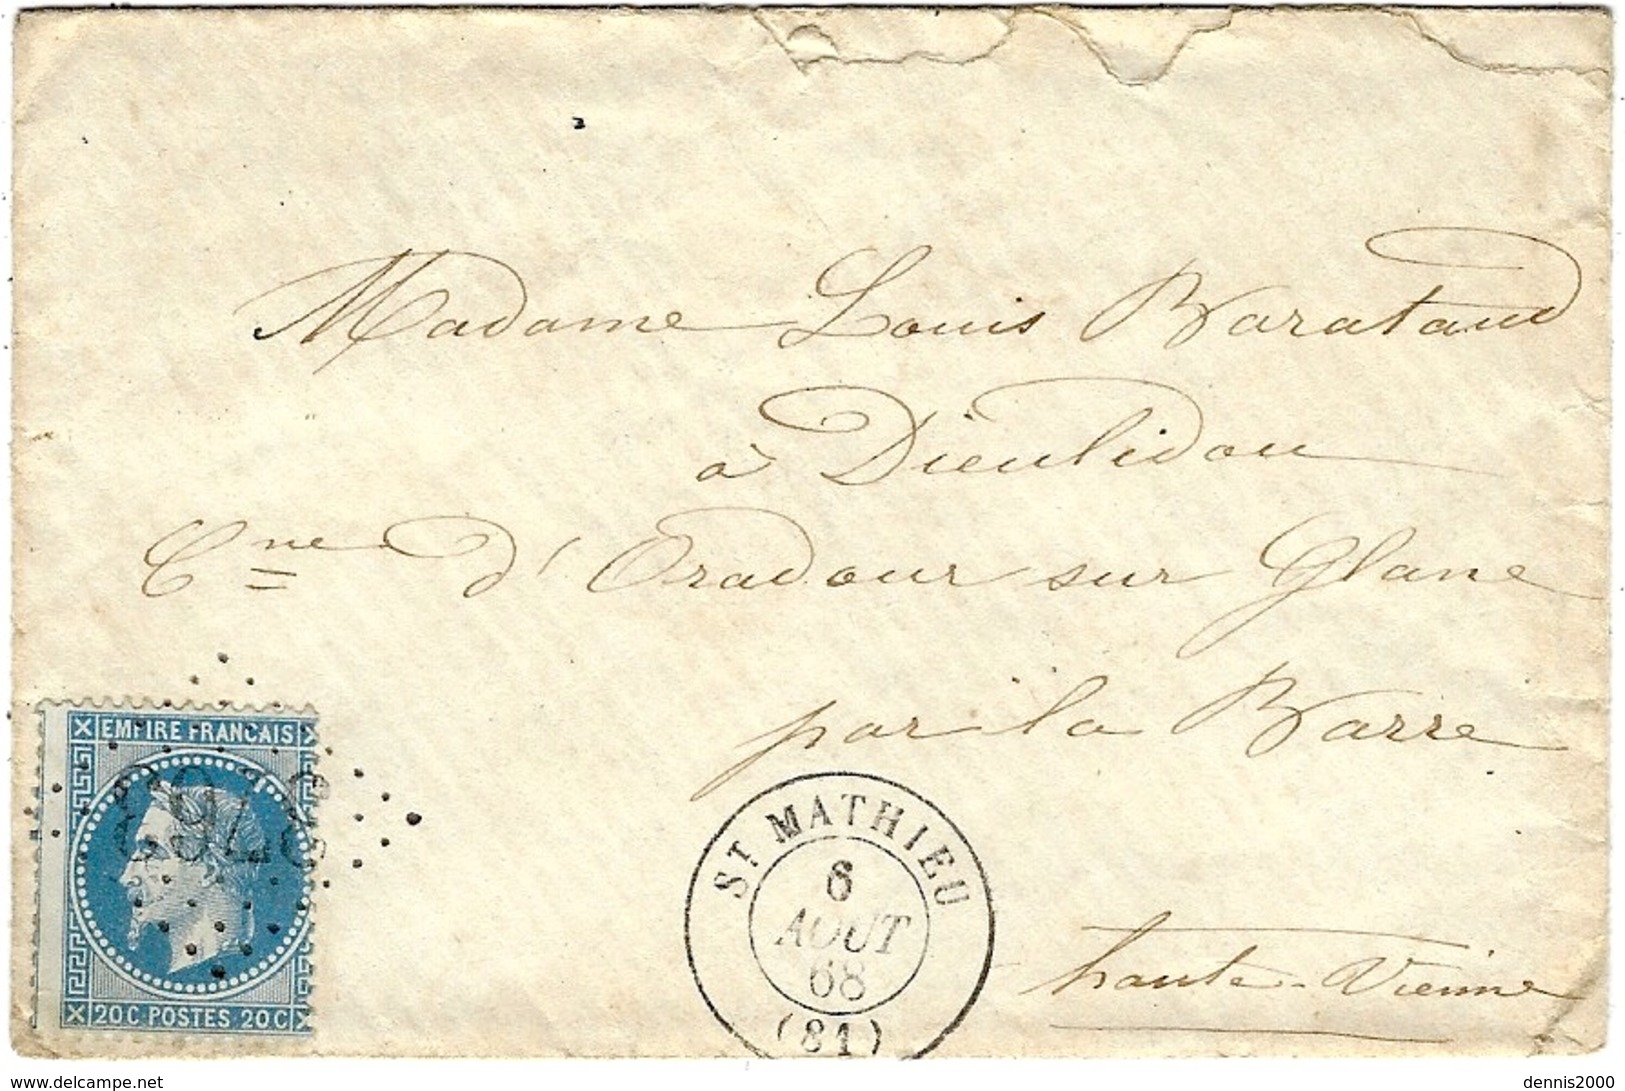 Madame Louis Barataud
à Dieulidou
Cne d'Oradour sur Glane
par la Barre
haute-Vienne
EMPIRE FRANCAIS
20C POSTES 20C
ST MATHIEU
6
AOUT
68
(81)
delcampe.net
dennis2000